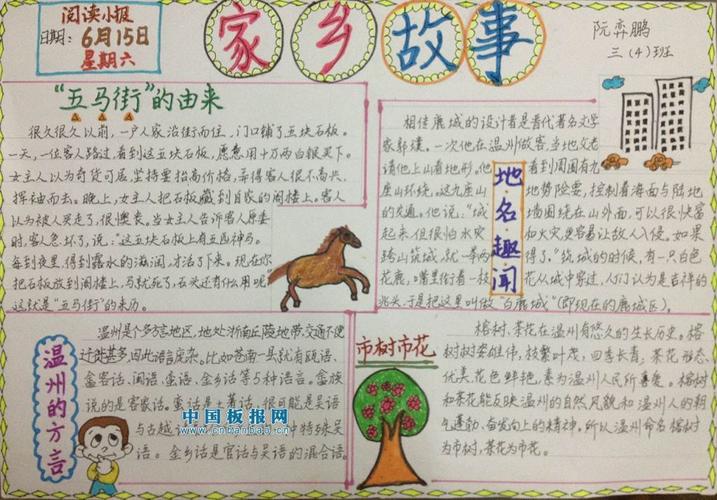 阅读小报
日期：6月15日
星期六
家乡故事
阮弈鹏
三（4）班
“五马街”的由来
很久很久以前，一户人家沿街而住，门口铺了五块石板。
一天，一位客人路过，看到这五块石板，愿意用十万两白银买下。
女主人以为奇货可居，坚持要抬高价格，弄得客人很不高兴，
挥袖而去。晚上，女主人把石板藏到自家的阁楼上。客人
以为被人买走了，很懊丧。当女主人告诉客人原委
时，客人急坏了，说：“这五块石板上有五匹神马。
每到夜里，得到露水的滋润，才活了下来。现在你
把石板放到阁楼上，马就死了，石头还有什么用呢？
这就是“五马街”的来历。
地名趣闻
相传鹿城的设计者是晋代著名文学
家郭璞。一次他在温州做客，当地父老
请他上山看地形。他看到周围有九
座山环绕。这九座山地带险要，控制着海面与陆地
的交通。他说，“城墙围绕在山外面，可以很快富
起来，但很怕水灾火灾更容易让敌人入侵。如果
跨山筑城，就一得了。”筑城的时候，有一只白色
花鹿，嘴里衔着一枝花从城中穿过，人们认为是吉祥的
兆头，于是把这里叫做“白鹿城”（即现在的鹿城区）。
温州的方言
温州是个多方言地区，地处浙南丘陵地带，交通不便
过甚多，因此语言庞杂。比如苍南一县就有瓯语、
畲客话、闽语、蛮话、金乡话等5种语言。畲族
说的是客家话。蛮话是土著话，很可能是吴语
与古越种特殊吴
语。金乡话是官话与吴语的混合语。
中国板报网
www.cnbanbao.cn
市树市花
榕树、茶花在温州有悠久的生长历史。榕
树树姿雄伟，枝繁叶茂，四季长青，茶花形态
优美，花色鲜艳，素为温州人民所喜爱。榕树
和茶花能反映温州的自然风貌和温州人的朝
气蓬勃、奋发向上的精神。所以温州命名榕树
为市树，茶花为市花。